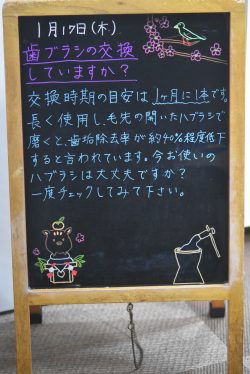 1月17日(木)
歯ブラシの交換
していますか?
交換時期の目安は1ヶ月に1本です。
長く使用し、毛先の開いたハブラシで
磨くと、歯垢除去率が約40%程度低下
すると言われています。今お使いの
ハブラシは大丈夫ですか?
一度チェックしてみて下さい。